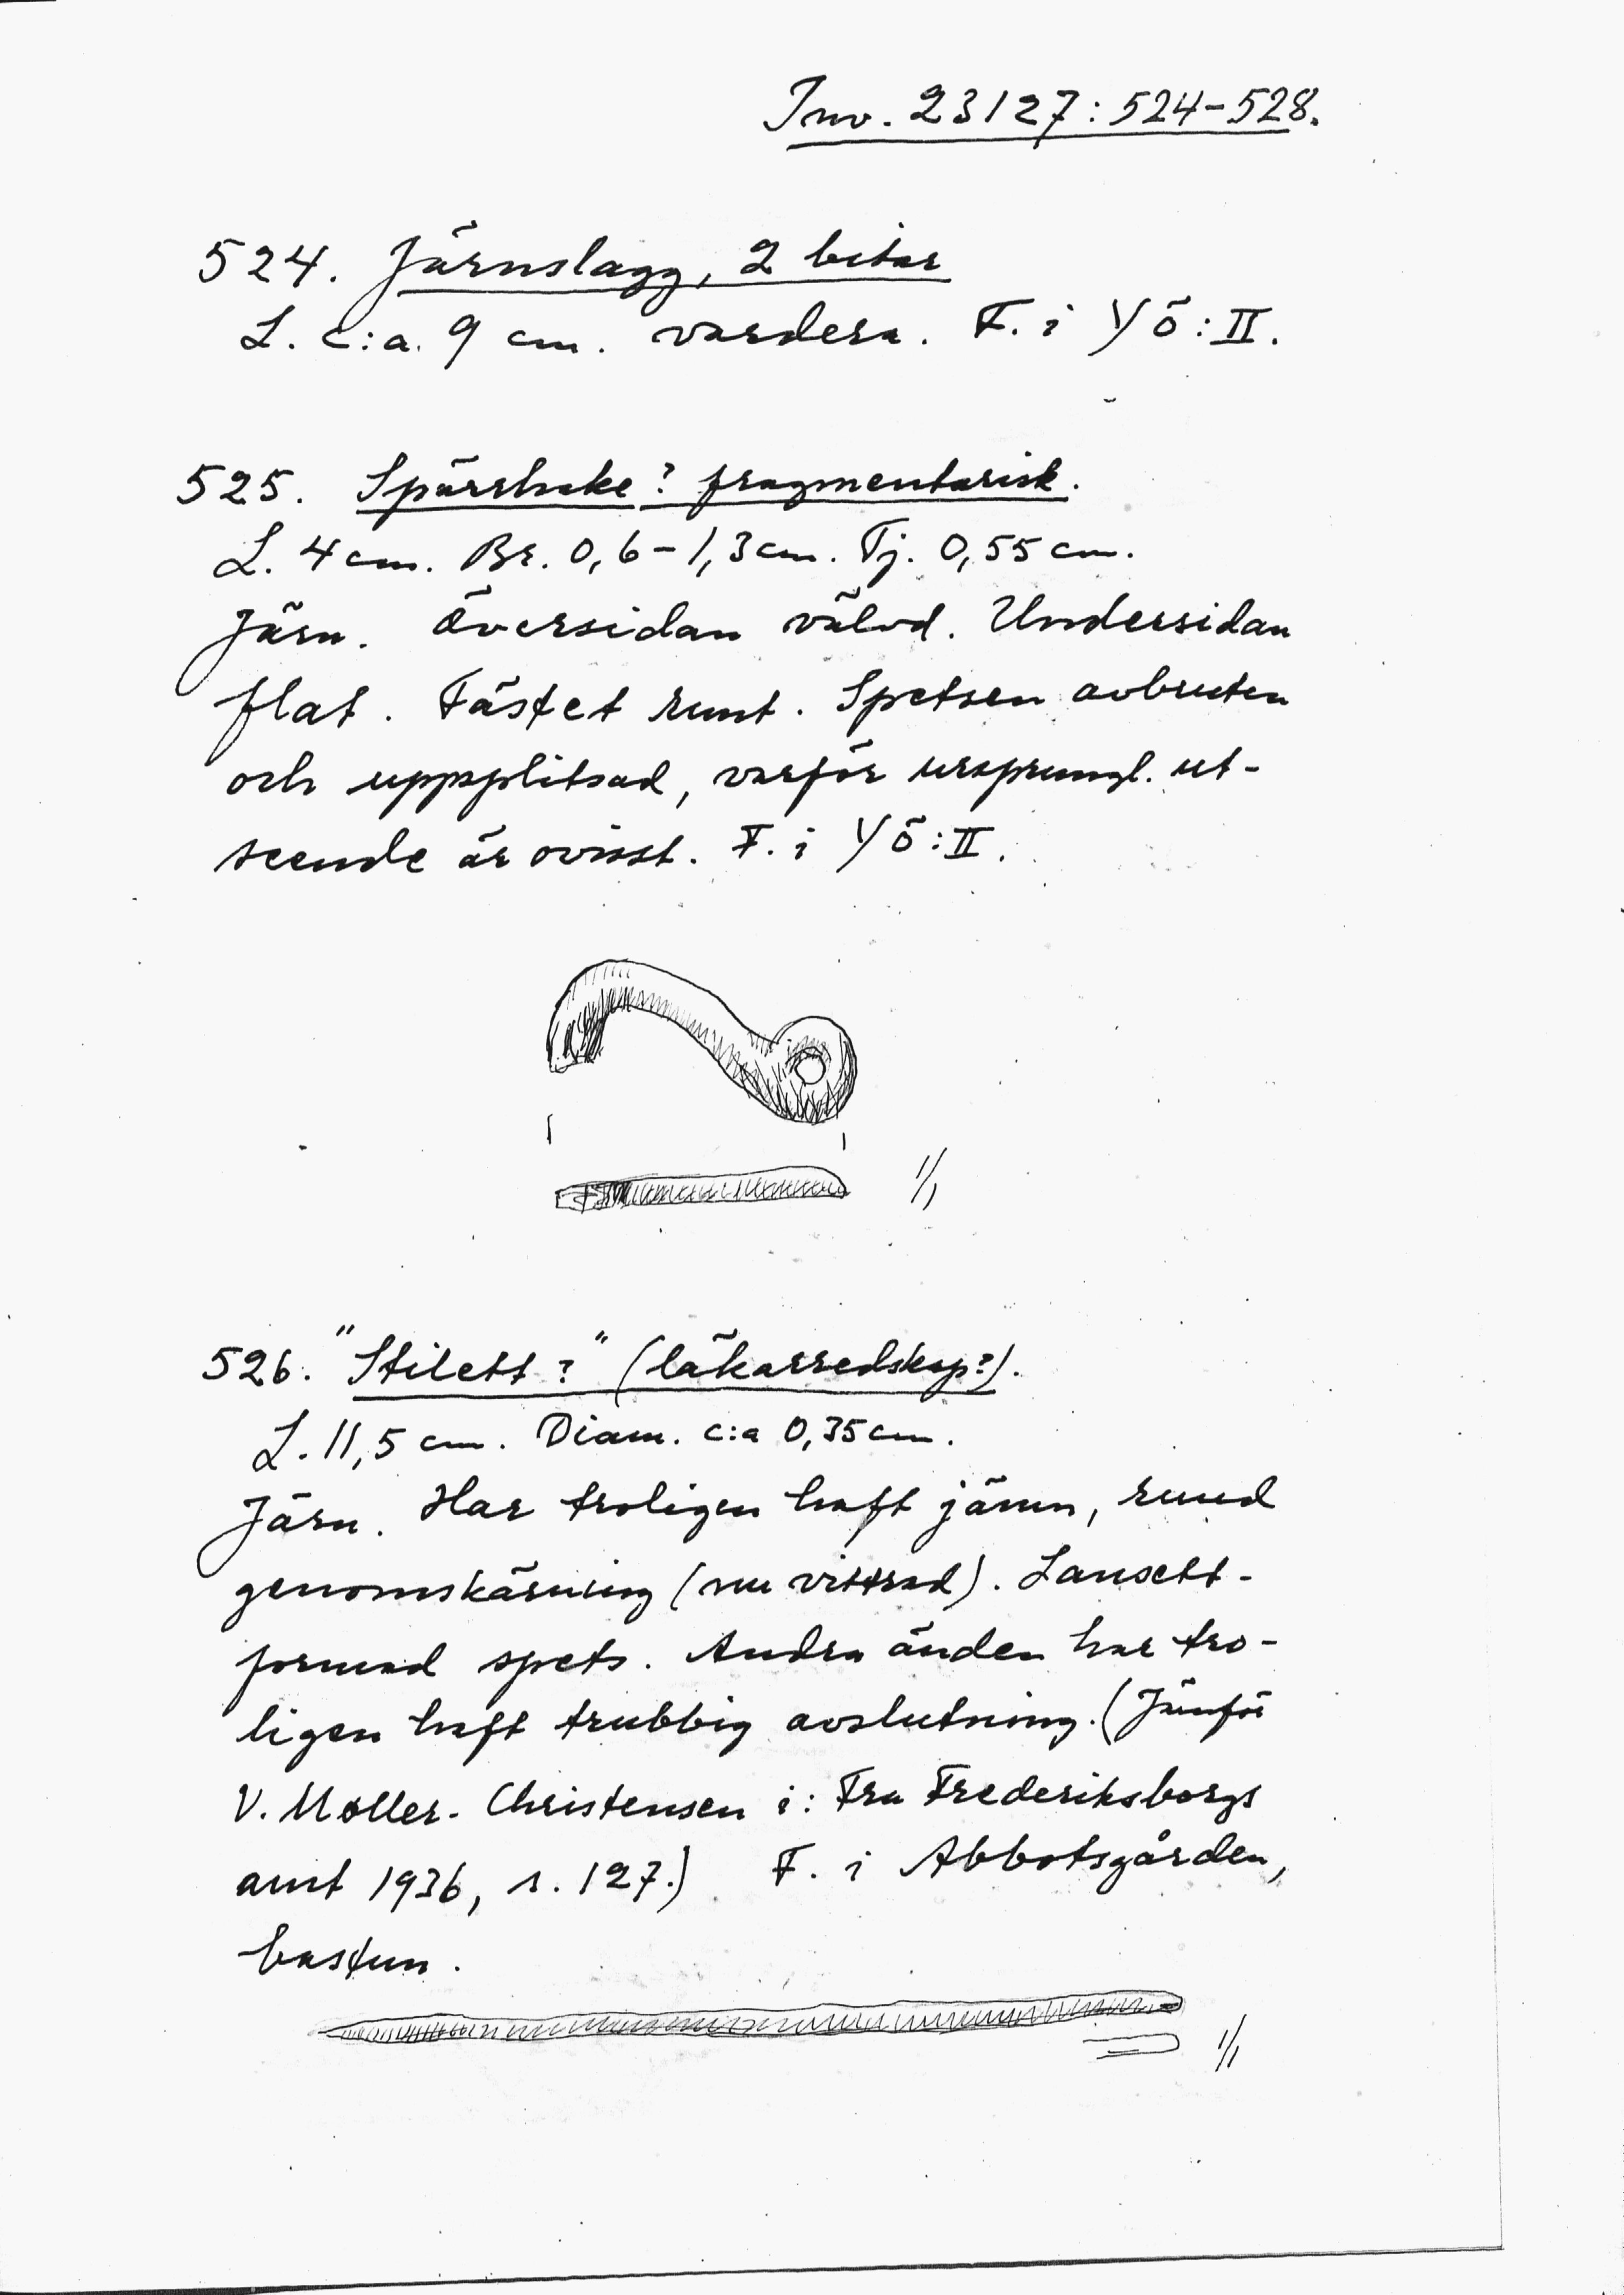 Inv. 23127:524-528.
524. Järnslagg, 2 bitar
L. c:a. 9 cm. vardera. F. i YÖ:II.
525. Spärrhake? fragmentarisk.
L. 4 cm. Br. 0,6-1,3 cm. Tj. 0,55 cm.
Järn. Översidan välvd. Undersidan
flat. Fästet runt. Spetsen avbruten
och uppsplitsad, varför ursprungl. ut-
seende är ovisst. F. i YÖ:II.
1/1
526. "Stilett?" (läkarredskap?).
L. 11,5 cm. Diam. c:a 0,35 cm.
Järn. Har troligen haft jämn, rund
genomskärning (nu vittrad). Lansett-
formad spets. Andra änden har tro-
ligen haft trubbig avslutning. (Jämför
V. Møller-Christensen i: Fra Frederiksborgs
amt 1936, s. 127.) F. i Abbotsgården,
bastun.
1/1